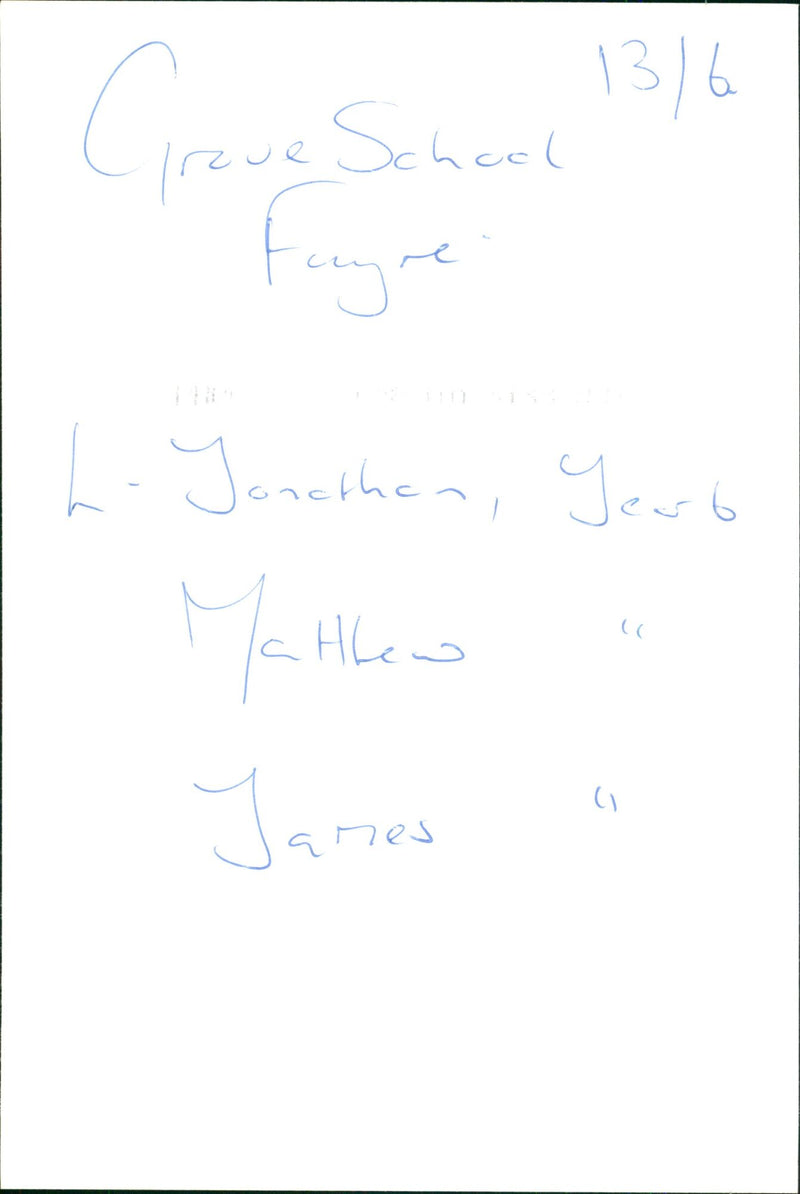 13/6
Grove School
Fayre
L- Jonathan, Year 6
Matthew "
James "